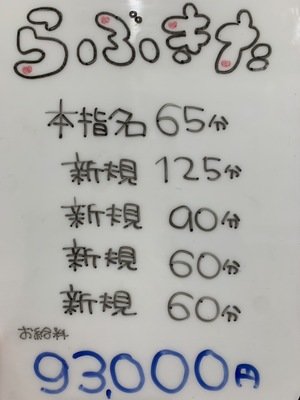 らぶぎが
本指名 65分
新規 125分
新規 90分
新規 60分
新規 60分
お給料
93,000円